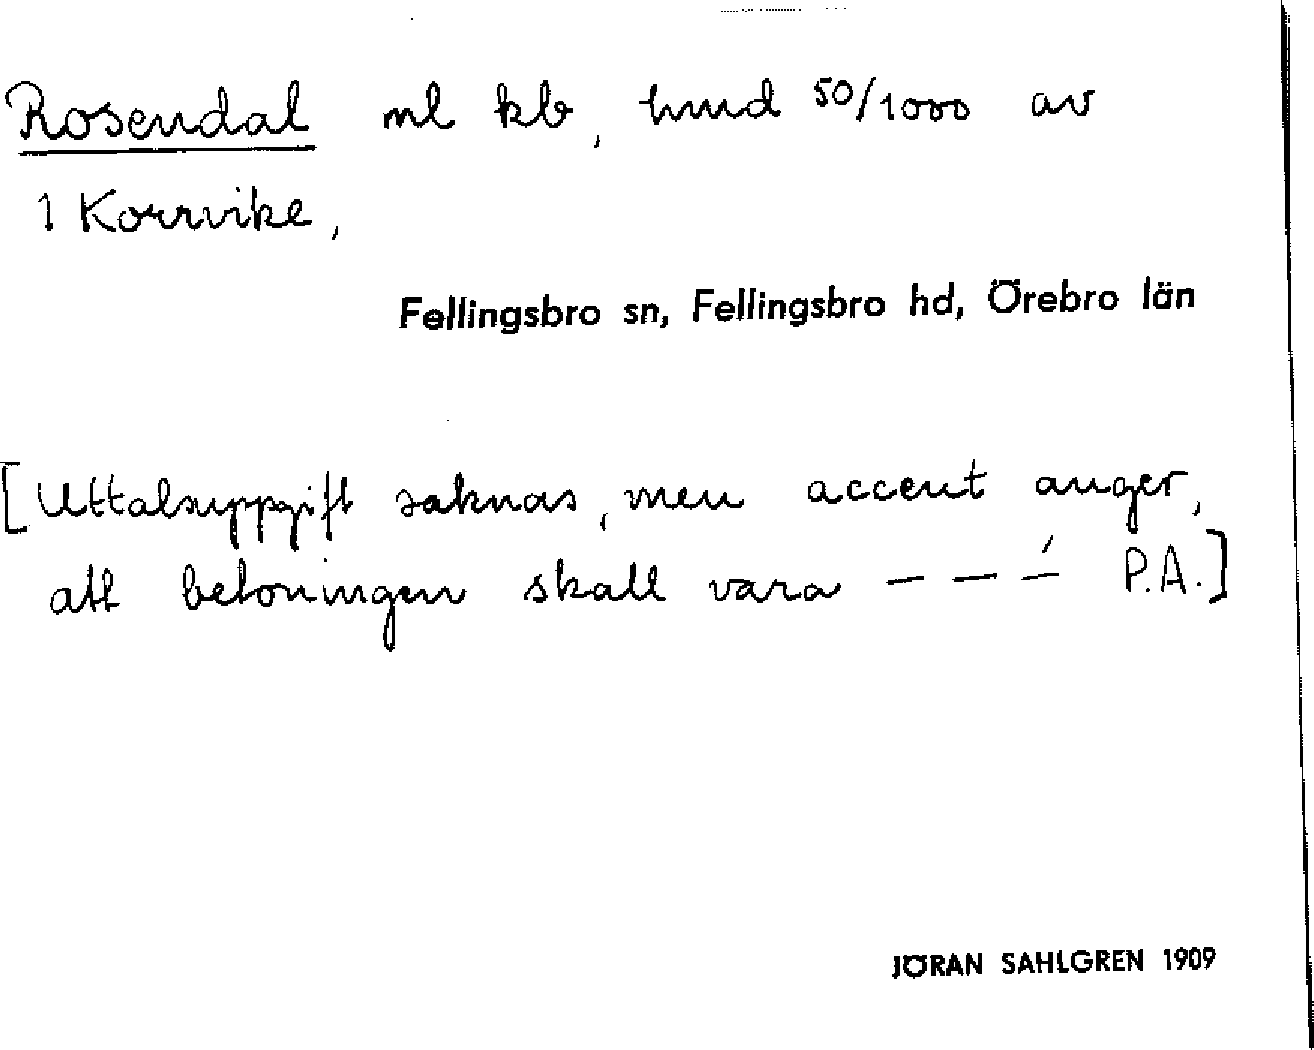 Rosendal ml kb, hmd 50/1000 av
1 Korrvike,
Fellingsbro sn, Fellingsbro hd, Örebro län
[Uttalsuppgift saknas, men accent anger,
att betoningen skall vara – – –́ P.A.]
JÖRAN SAHLGREN 1909